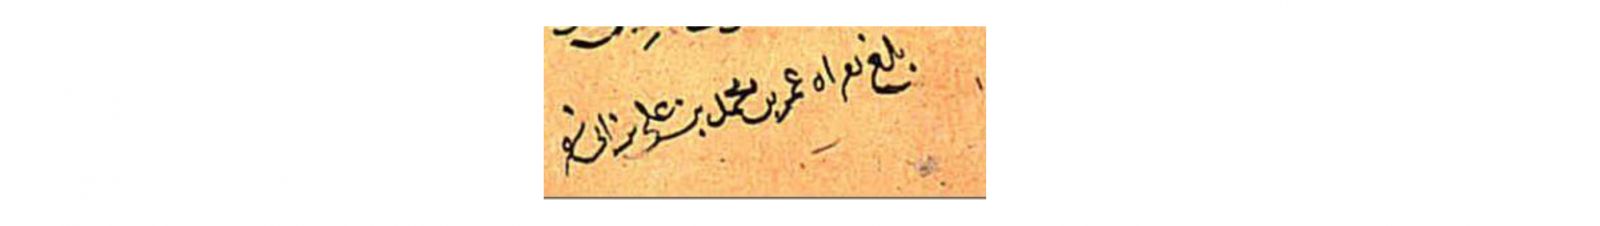 بلغ قراه عمر بن محمد بن علي بن ابي نصر